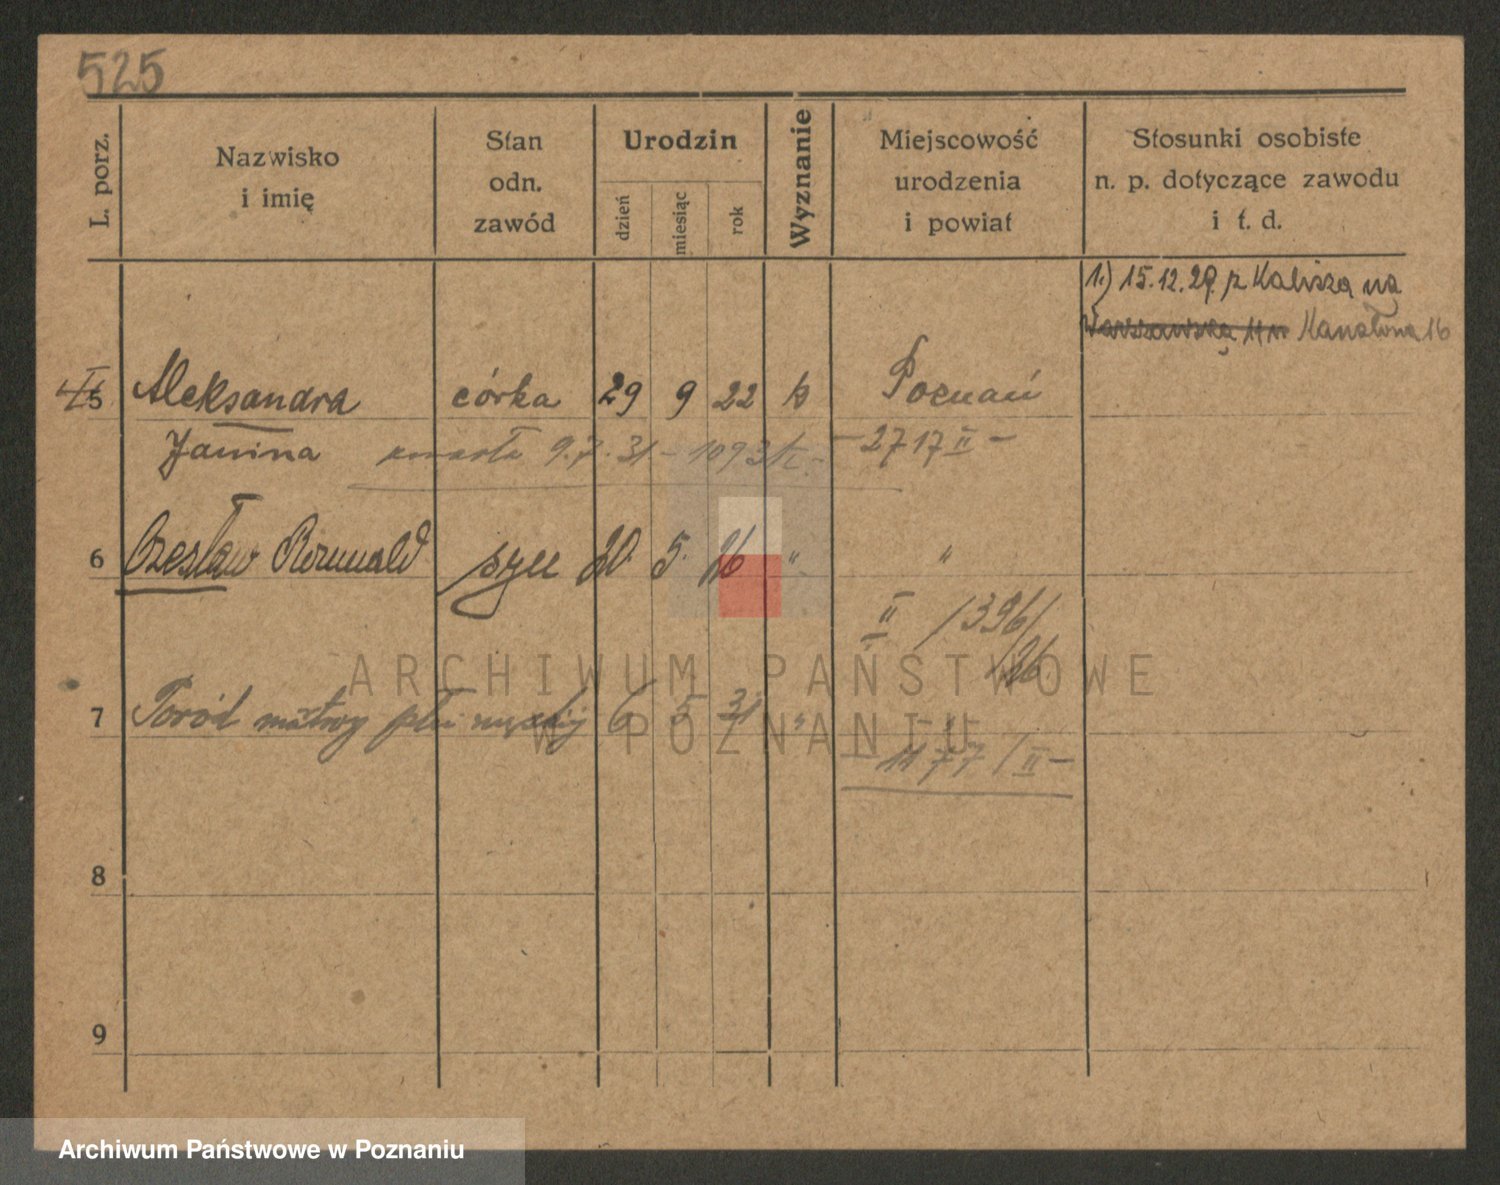 525
L. porz.
Nazwisko
i imię
Stan
odn.
zawód
Urodzin
dzień
miesiąc
rok
Wyznanie
Miejscowość
urodzenia
i powiat
Stosunki osobiste
n. p. dotyczące zawodu
i t. d.
1.) 15.12.29. z Kalisza na
Warszawską Kanałowa 16
5 Aleksandra córka 29 9 22 k Poznań
Janina zmarła 9.7.31 - 1093 - 2717 II -
6 Czesław Romuald syn 20. 5. 26 " "
II /396/
/26
7 Poród martwy płci męskiej 6 5 31 "
- 1177/II -
8
9
ARCHIWUM PAŃSTWOWE
W POZNANIU
Archiwum Państwowe w Poznaniu